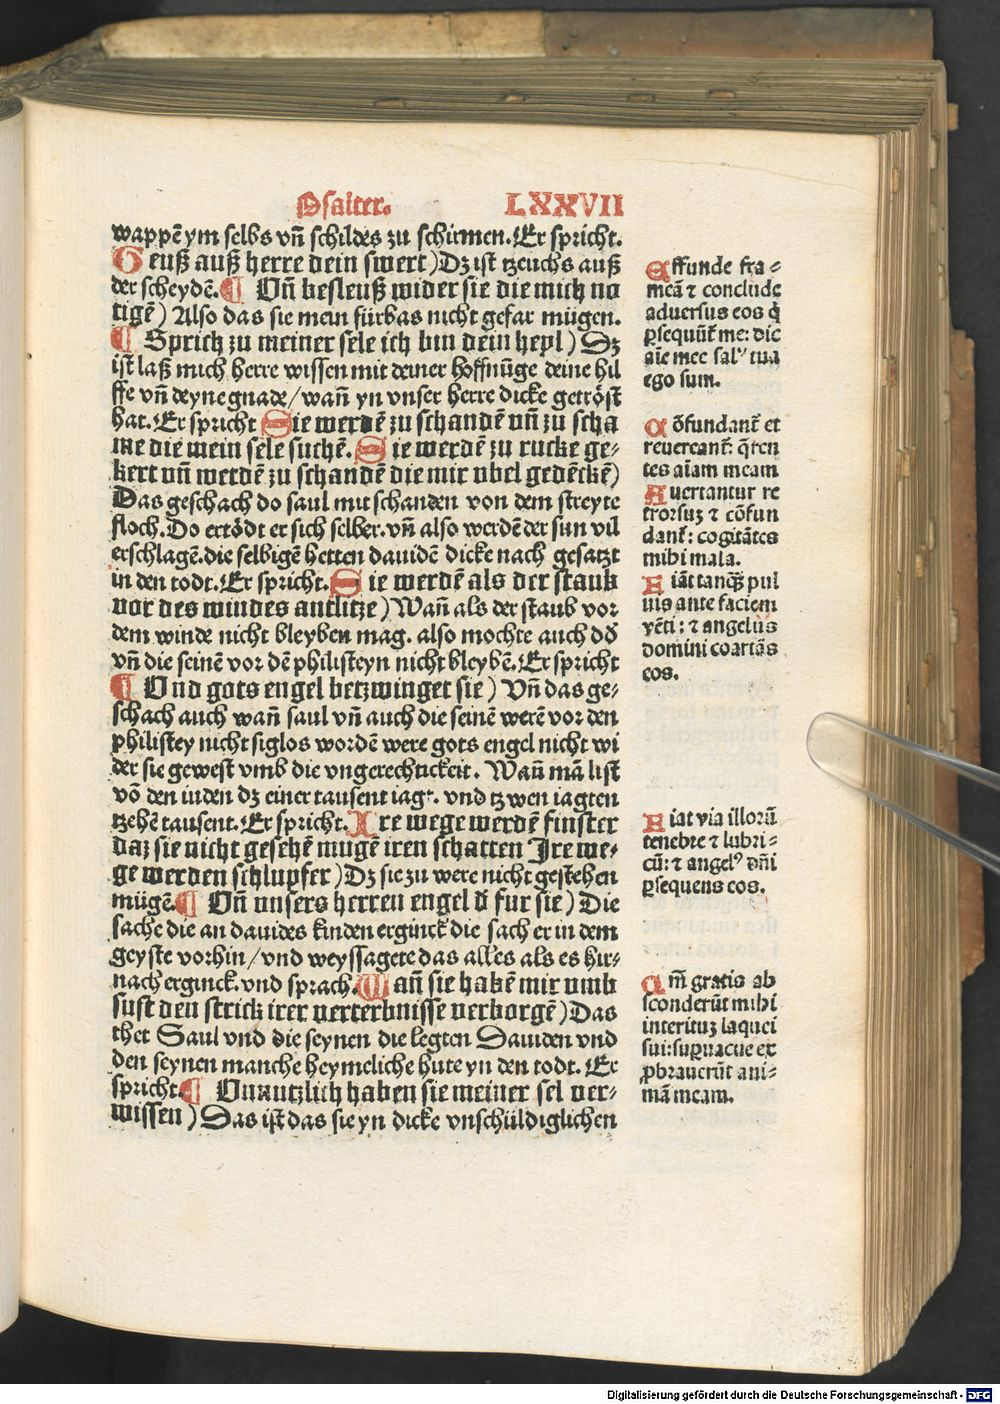 Psalter. LXXVII
wappē ym selbs vn̄ schildes zu schirmen. Er spricht.
Geuß auß herre dein swert) Dz ist tzeuchs auß
der scheydē. ¶ Vn̄ besleuß wider sie die mich no
tigē) Also das sie mein fürbas nicht gefar mügen.
¶ Sprich zu meiner sele ich bin dein heyl) Dz
ist laß mich herre wissen mit deiner hoffnūge deine hil
ffe vn̄ deyne gnade/ wan̄ yn vnser herre dicke getröst
hat. Er spricht Sie werdē zu schandē vn̄ zu scha
me die mein sele suchē. Sie werdē zu rucke ge⸗
kert vn̄ werdē zu schandē die mir vbel gedēckē)
Das geschach do saul mit schanden von dem streyte
floch. Do ertödt er sich selber. vn̄ also werdē der sun vil
erschlagē. die selbigē hetten dauidē dicke nach gesatzt
in den todt. Er spricht. Sie werdē als der staub
vor des windes antlitze) Wan̄ als der staub vor
dem winde nicht bleyben mag. also mochte auch dd̄
vn̄ die seinē vor dē philisteyn nicht bleybē. Er spricht
¶ Vnd gots engel betzwinget sie) Vn̄ das ge⸗
schach auch wan̄ saul vn̄ auch die seinē werē vor den
philistey nicht siglos wordē were gots engel nicht wi
der sie gewest vmb die vngerechtickeit. Wan̄ mā list
vō den iuden dz einer tausent iagt. vnd tzwen iagten
tzehē tausent. Er spricht. Ire wege werdē finster
daz sie nicht gesehē mugē iren schatten Ire we⸗
ge werden schlupfer) Dz sie zu were nicht gestehen
mügē. ¶ Vn̄ vnsers herren engel d̄ fur sie) Die
sache die an dauides kinden erginck die sach er in dem
geyste vorhin/ vnd weyssagete das alles als es hir⸗
nach erginck. vnd sprach. Wan̄ sie habē mir vmb
sust den strick irer verterbnisse verborgē) Das
thet Saul vnd die seynen die legten Dauiden vnd
den seynen manche heymeliche hute yn den todt. Er
spricht. ¶ Vnnutzlich haben sie meiner sel ver⸗
wissen) Das ist das sie yn dicke vnschüldiglichen
Effunde fra⸗
meā ⁊ conclude
aduersus eos q̄
ꝑsequūt̄ me: dic
aīe mee salꝰ tua
ego sum.
Cōfundant̄ et
reuereant̄: q̄ren
tes aīam meam
Auertantur re
trorsuꝫ ⁊ cōfun
dant̄: cogitātes
mihi mala.
Fiāt tanqꝫ̄ pul
uis ante faciem
vēti: ⁊ angelus
domini coartās
eos.
Fiat via illorū
tenebre ⁊ lubri⸗
cū: ⁊ angelꝰ dn̄i
ꝑsequens eos.
Qm̄ gratis ab
sconderūt mihi
interituꝫ laquei
sui: suꝑuacue ex
ꝓbrauerūt ani⸗
mā meam.
Digitalisierung gefördert durch die Deutsche Forschungsgemeinschaft - DFG